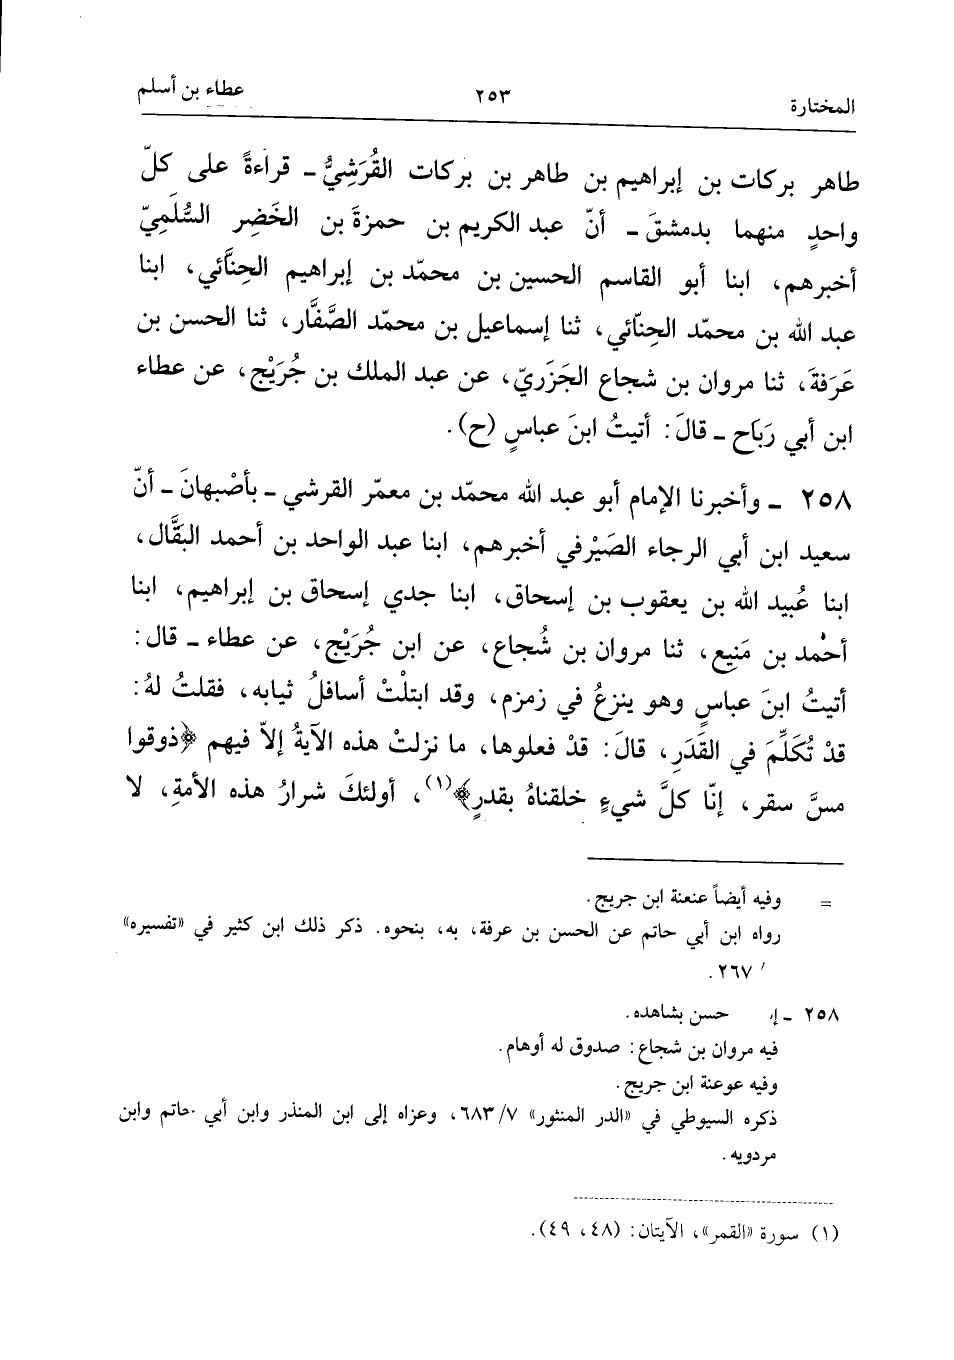 المختارة ٢٥٣ عطاء بن أسلم
طاهر بركات بن إبراهيم بن طاهر بن بركات القُرَشِيُّ ـ قراءةً على كلّ
واحدٍ منهما بدمشقَ ـ أنّ عبد الكريم بن حمزةَ بن الخَضِر السُّلَمِيّ
أخبرهم، ابنا أبو القاسم الحسين بن محمّد بن إبراهيم الحِنَّائي، ابنا
عبد الله بن محمّد الحِنّائي، ثنا إسماعيل بن محمّد الصَّفَّار، ثنا الحسن بن
عَرَفةَ، ثنا مروان بن شجاع الجَزَريّ، عن عبد الملك بن جُرَيْج، عن عطاء
ابن أبي رَبَاح ـ قالَ: أتيتُ ابنَ عباسٍ (ح).
٢٥٨ ـ وأخبرنا الإمام أبو عبد الله محمّد بن معمّر القرشي ـ بأصْبهانَ ـ أنّ
سعيد ابن أبي الرجاء الصَيْرفي أخبرهم، ابنا عبد الواحد بن أحمد البَقَّال،
ابنا عُبيد الله بن يعقوب بن إسحاق، ابنا جدي إسحاق بن إبراهيم، ابنا
أحْمد بن مَنيع، ثنا مروان بن شُجاع، عن ابن جُرَيْج، عن عطاء ـ قال:
أتيتُ ابنَ عباسٍ وهو ينزعُ في زمزم، وقد ابتلْتْ أسافلُ ثيابه، فقلتُ لهُ:
قدْ تُكَلِّمَ في القَدَرِ، قالَ: قدْ فعلوها، ما نزلتْ هذه الآيةُ إلاّ فيهم ﴿ذوقوا
مسَّ سقر، إنّا كلَّ شيءٍ خلقناهُ بقدرٍ﴾(١)، أولئكَ شرارُ هذه الأمةِ، لا
= وفيه أيضاً عنعنة ابن جريج.
رواه ابن أبي حاتم عن الحسن بن عرفة، به، بنحوه. ذكر ذلك ابن كثير في «تفسيره»
/ ٢٦٧.
٢٥٨ ـ حسن بشاهده.
فيه مروان بن شجاع: صدوق له أوهام.
وفيه عوعنة ابن جريج.
ذكره السيوطي في «الدر المنثور» ٦٨٣/٧، وعزاه إلى ابن المنذر وابن أبي حاتم وابن
مردويه.
(١) سورة «القمر»، الآيتان: (٤٨، ٤٩).